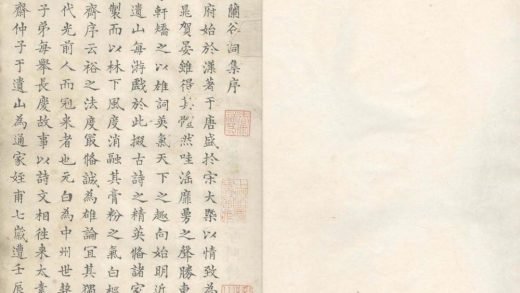 蘭谷詞集序
府始於漢著于唐盛於宋大槩以情致為
晁賀晏雖得其體然哇滛靡曼之聲勝東
軒矯之以雄詞英氣天下之趣向始明近
遺山每游戲於此掇古詩之精英備諸家
製而以林下風度消融其膏粉之氣白樞
齊序云裕之法度最備誠為雄論宜其獨
代光前人而冠來者也元白為中州世契
子弟每舉長慶故事以詩文相往來太素
齋仲子于遺山為通家姪甫七歲遭壬辰